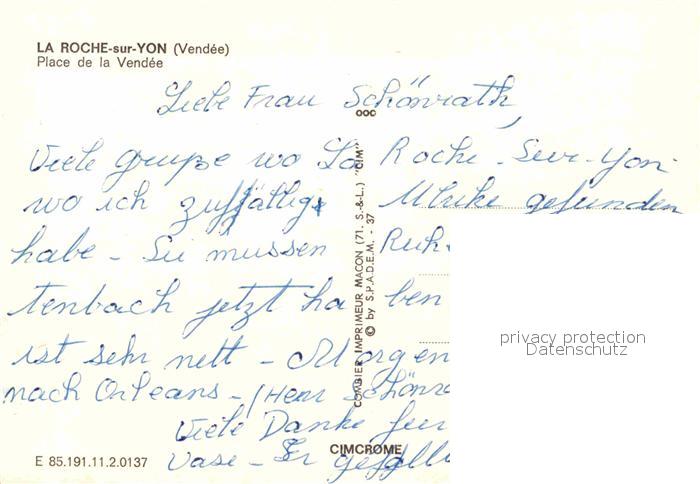 LA ROCHE-sur-YON (Vendée)
Place de la Vendée
Liebe Frau Schönrath,
Viele grupse wo La Roche-Sur-Yon-
wo ich zuffällig Ulrike gefunden
habe - Su mussen Ruh
tenbach jetzt ha ben
ist sehr nett - Morgen
nach Orleans - (Herr Schönra
Viele Danke feur
Vase - Er gefäll
COMBIER IMPRIMEUR MACON (71. S.-&-L.) "CIM"
© by S.P.A.D.E.M. - 37
CIMCROME
E 85.191.11.2.0137
privacy protection
Datenschutz